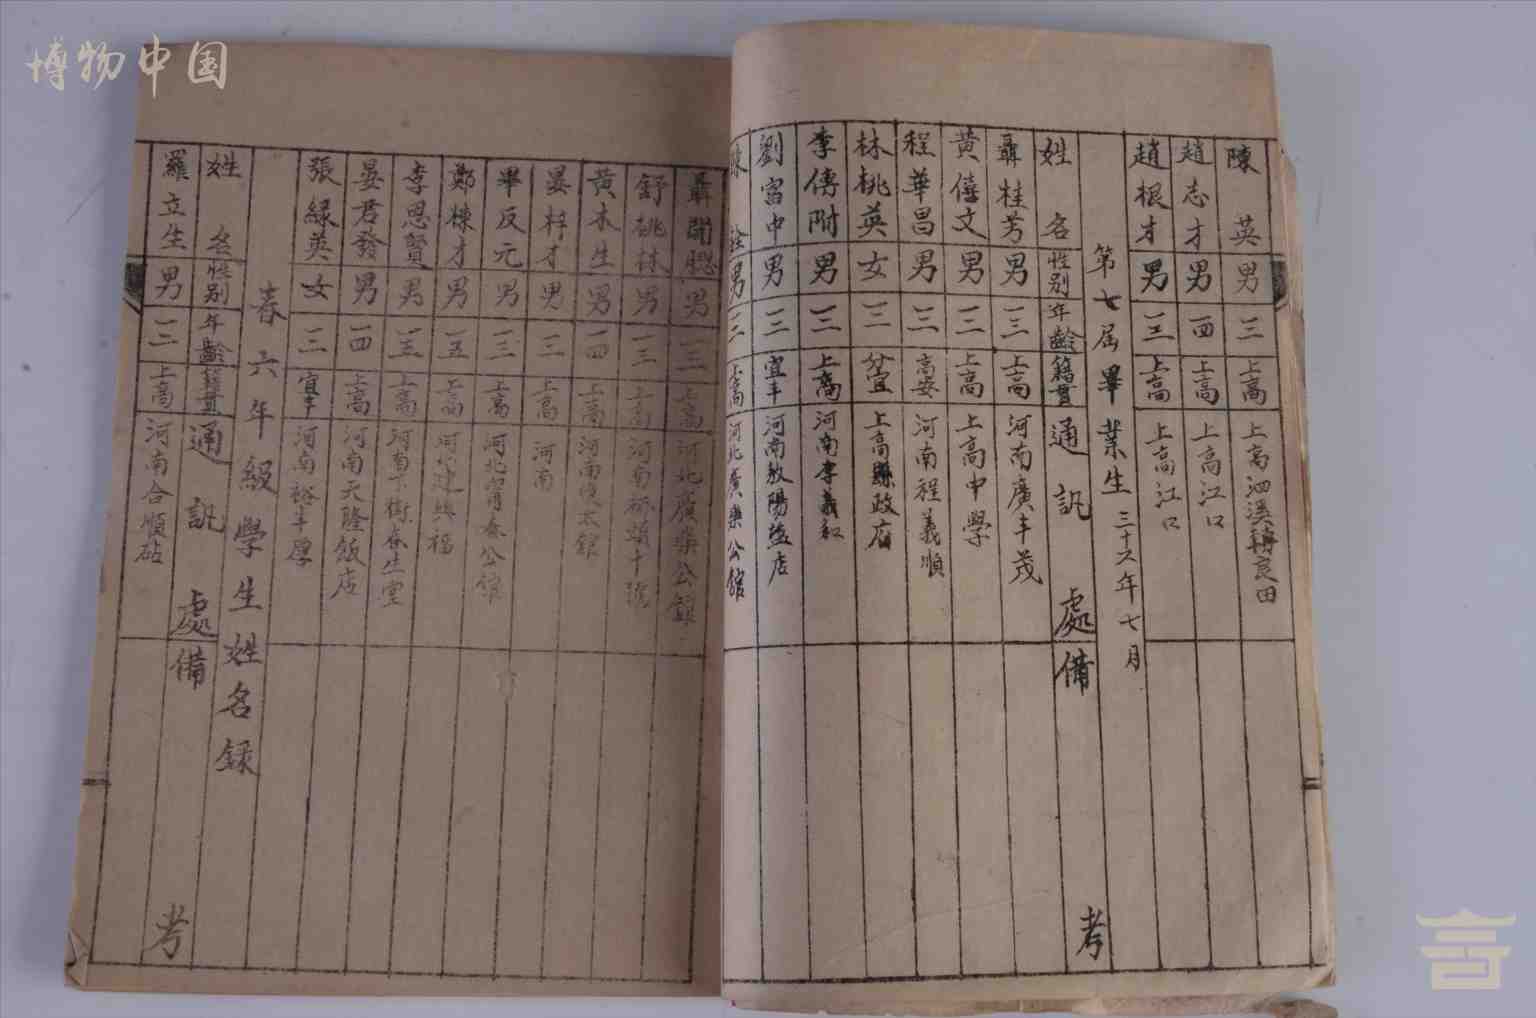 博物中国
陳英 男 一三 上高 上高泗溪轉良田
趙志才 男 一四 上高 上高江口
趙根才 男 一五 上高 上高江口
第七届畢業生 三十六年七月
姓名 性别 年齡 籍貫 通訊處 備考
聶桂芳 男 一三 上高 河南廣丰茂
黄僖文 男 一三 上高 上高中學
程華昌 男 一三 高安 河南程義順
林桃英 女 一三 分宜 上高縣政府
李傳附 男 一三 上高 河南李義和
劉富中 男 一三 宜丰 河南敦陽鹽店
陳銓 男 一三 上高 河北廣樂公館
聶開聰 男 一三 上高 河北廣樂公館
舒桃林 男 一三 上高 河南橋頭十號
黄本生 男 一四 上高 河南
晏梓才 男 一三 上高 河南
畢反元 男 一三 上高 河北公館
鄭棟才 男 一五 上高
李恩賢 男 一五 上高 河南下街春生堂
晏君發 男 一四 上高 河南天隆飯店
張緑英 女 一三 宜丰 河南裕丰厚
春六年級學生姓名録
姓名 性别 年齡 籍貫 通訊處 備考
羅立生 男 一三 上高 河南合順砧